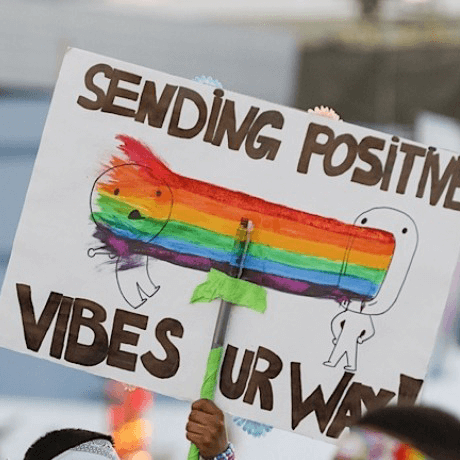 SENDING POSITIVE
VIBES UR WAY!